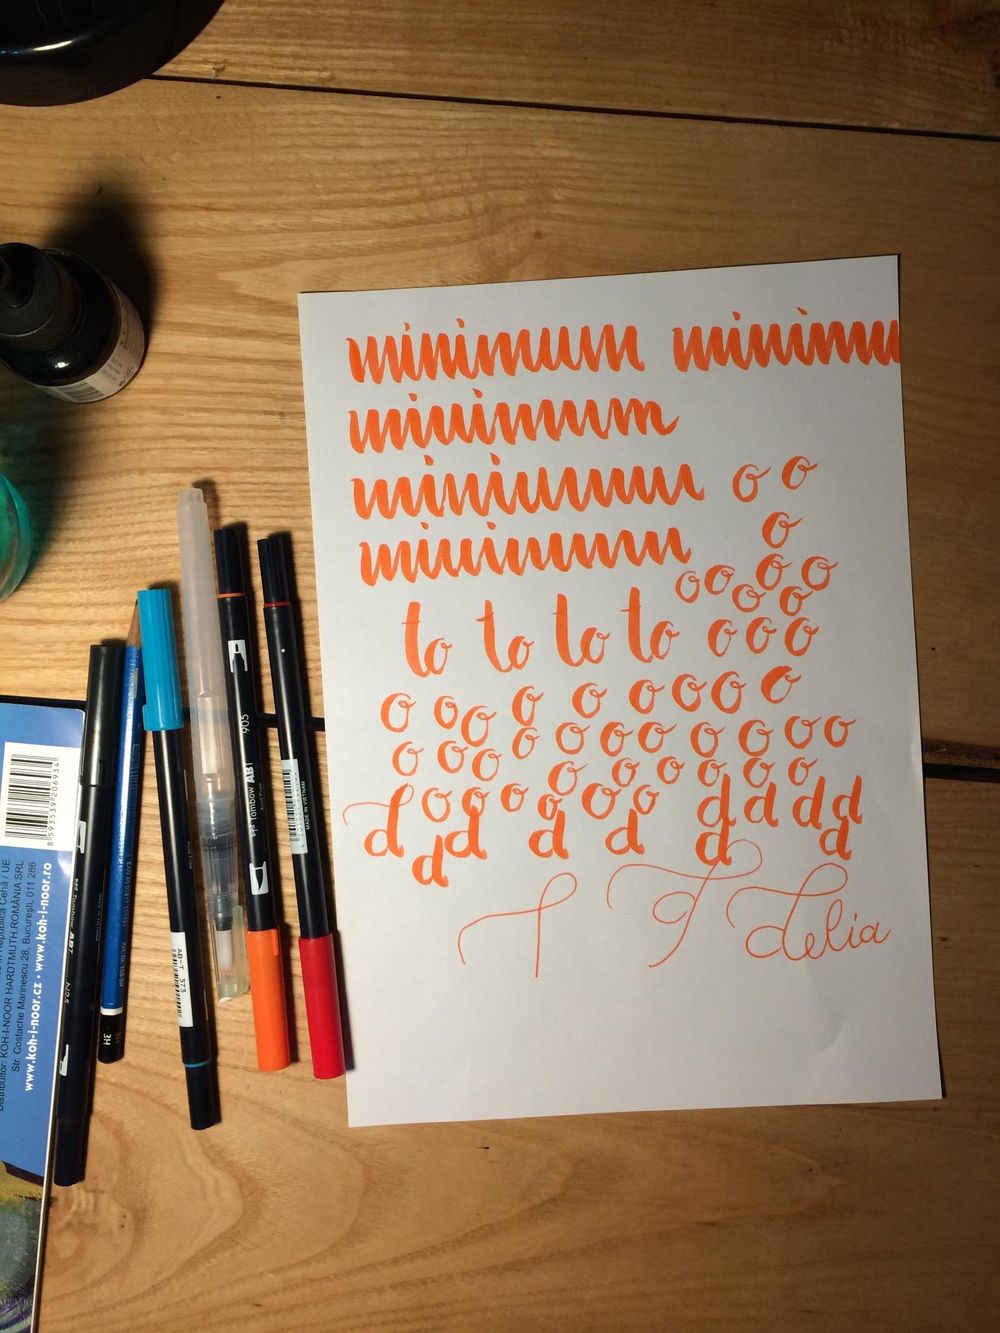 minimum minimu
minimum
minimum
minimum
o o
o
o o o o
o o
to to to to o o o
o o o o o o o o o
o o o o o o o o o o
o o o o o o o o o
d o o o o o o d d d d
d d d d d d
Delia
905
Tombow ABT
MADE IN VIETNAM
AB-T 373
N25
3H
8593539206934
Distribuitor: KOH-I-NOOR HARDTMUTH ROMÂNIA SRL
Str. Costache Marinescu 28, București, 011 286
www.koh-i-noor.cz • www.koh-i-noor.ro